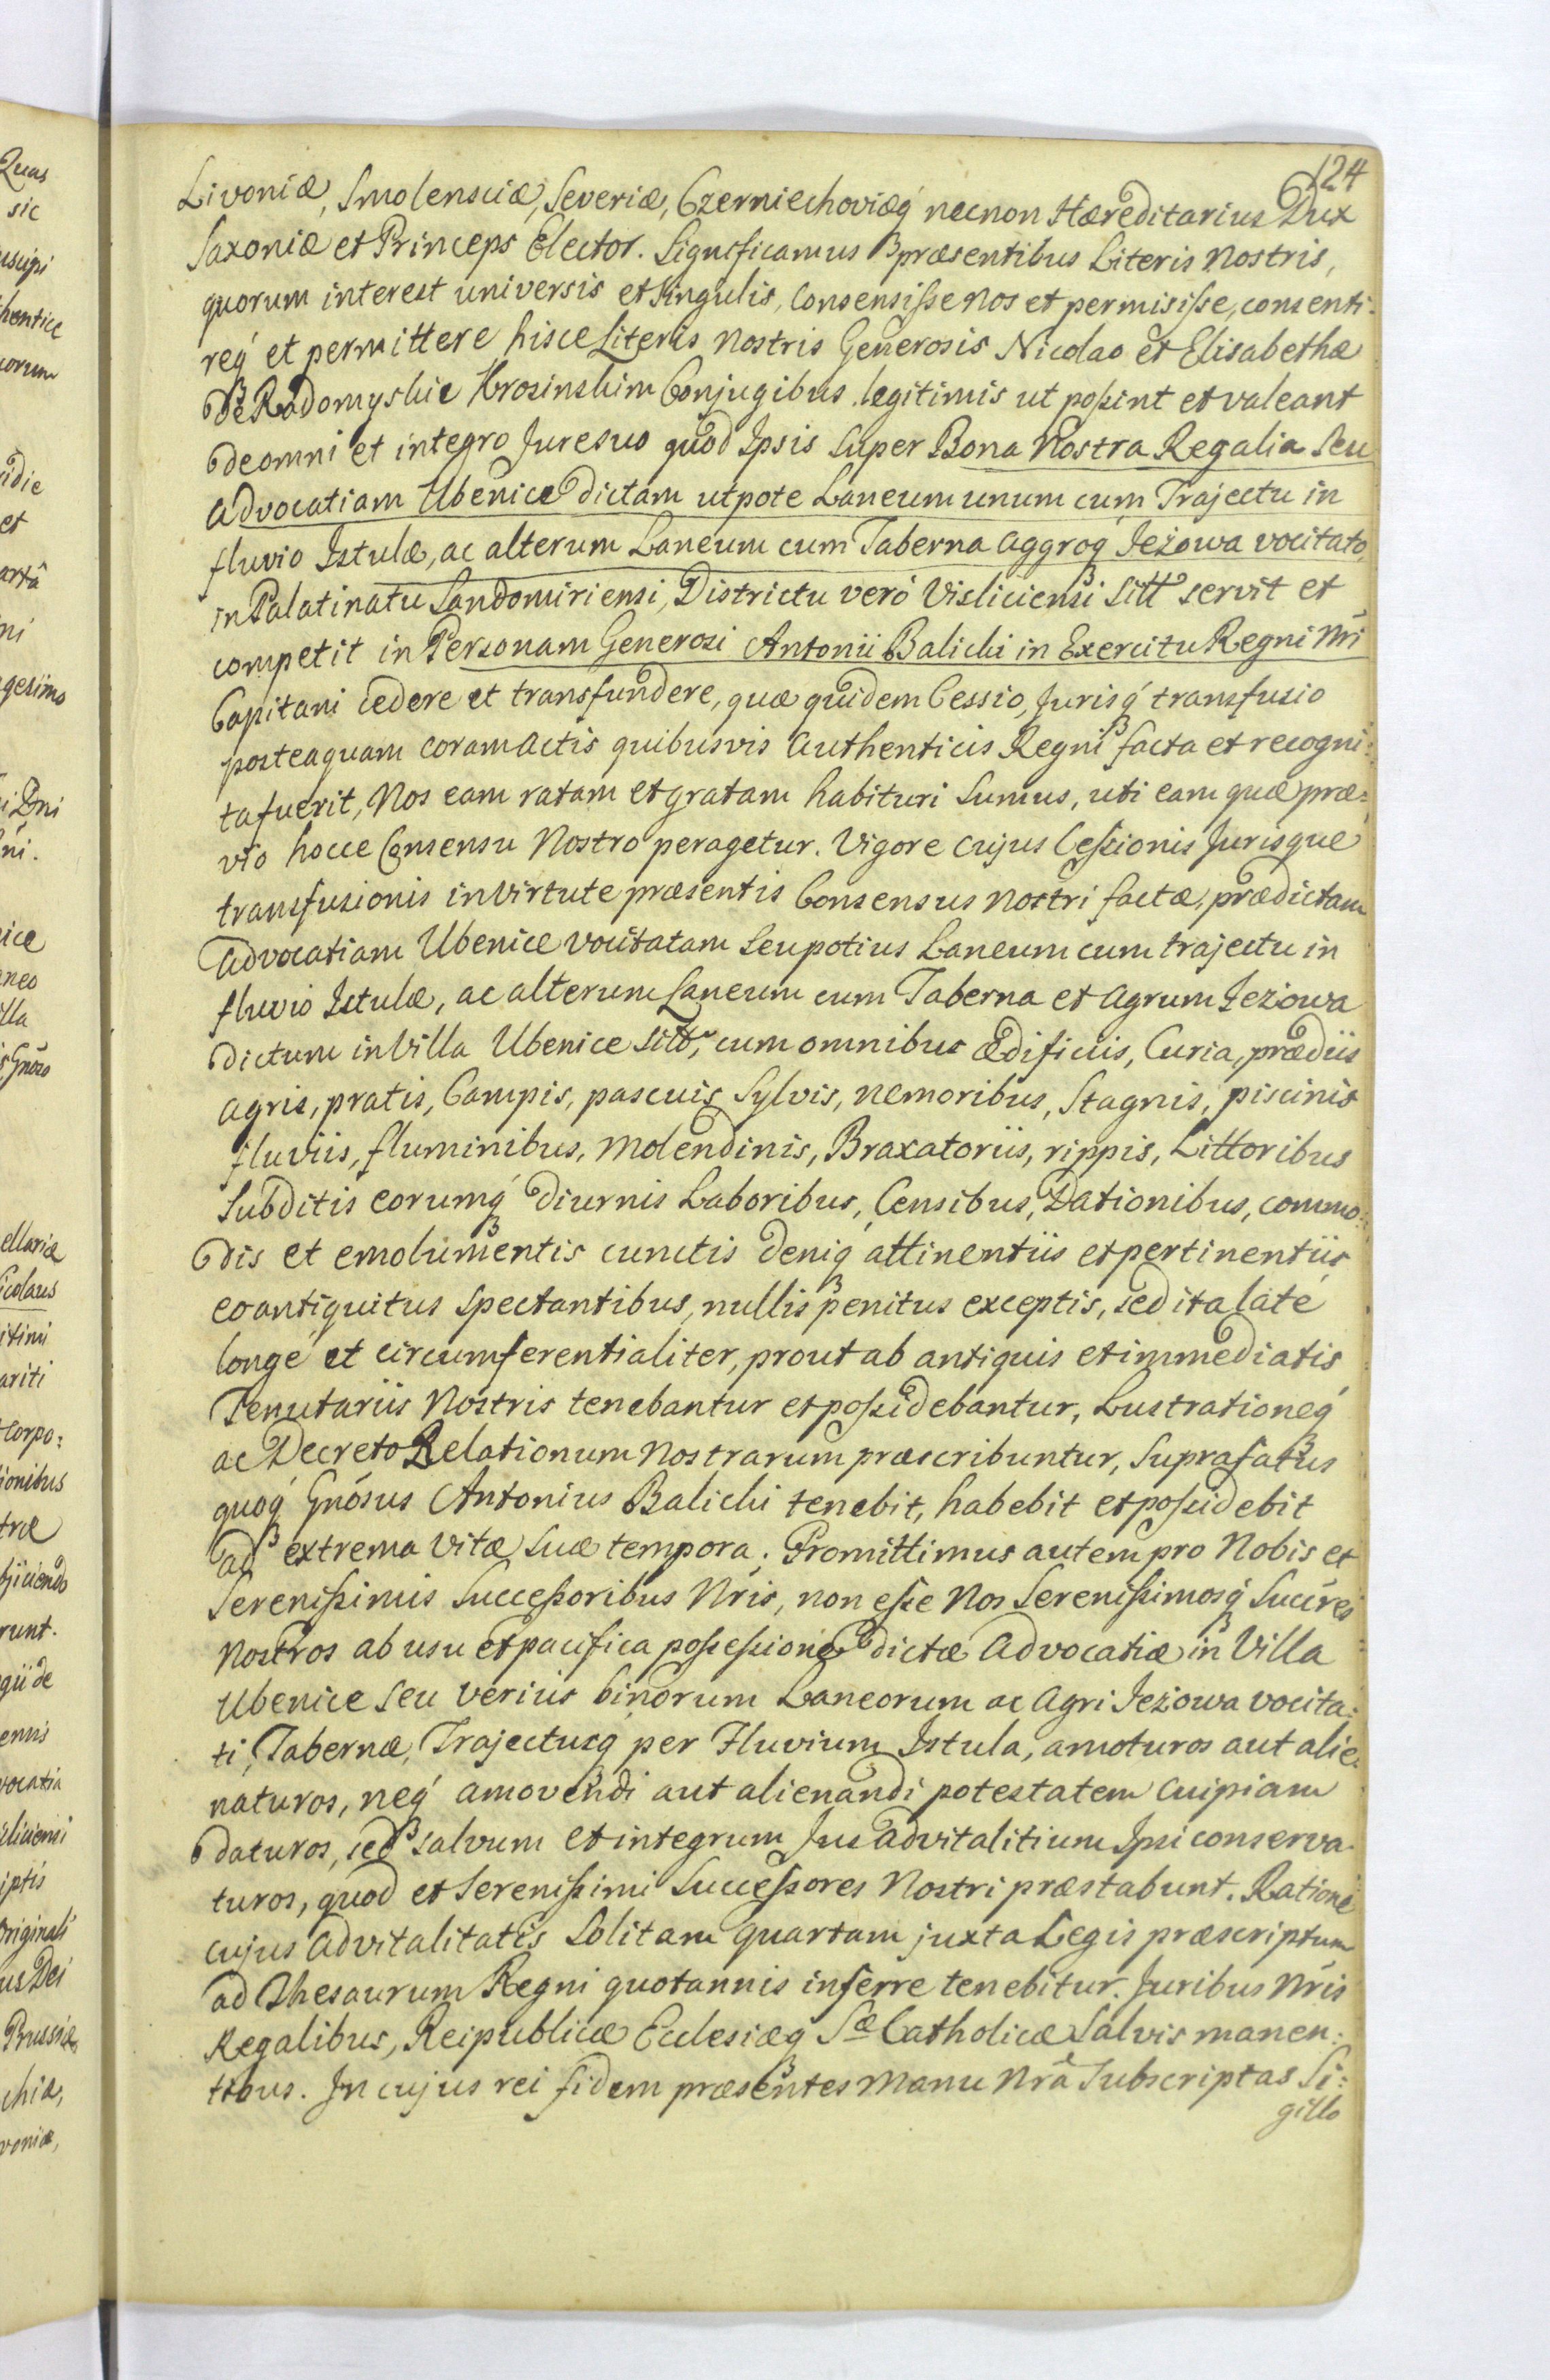 124
Livoniæ, Smolensciæ, Severiæ, Czerniechoviæq́ necnon Hæreditarius Dux
Saxoniæ et Princeps Elector. Significamus præsentibus Literis Nostris,
quorum interest universis et singulis, Consensisse Nos et permisisse, consenti:
req́ et permittere hisce Literis Nostris Generosis Nicolao et Elisabethæ
De Radomyskie Krosinskim Conjugibus legitimis ut possint et valeant
de omni et integro Jure suo quod Ipsis Super Bona Nostra Regalia Seu
advocatiam Ubenice dictam utpote Laneum unum cum Trajectu in
fluvio Istulæ, ac alterum Laneum cum Taberna aggroq́ Jeżowa vocitato
in Palatinatu Sandomiriensi, Districtu veró Visliciensi Sitt servit et
competit in Personam Generosi Antonii Balicki in Exercitu Regni Nri
Capitani cedere et transfundere, quæ quidem Cessio, Jurisq́ transfusio
posteaquam coram actis quibusvis Authenticis Regni facta et recogni:
ta fuerit, Nos eam ratam et gratam habituri Sumus, uti eam quæ præ:
vio hocce Consensu Nostro peragetur. Vigore cujus Cessionis Jurisque
transfusionis in Virtute præsentis Consensus Nostri factæ, prædictam
advocatiam Ubenice vocitatam Seu potius Laneum cum trajectu in
fluvio Istulæ, ac alterum Laneum cum Taberna et agrum Jeżowa
dictum in Villa Ubenice sitt, cum omnibus Ædificiis, Curia, prædiis
agris, pratis, Campis, pascuis, Sylvis, nemoribus, Stagnis, piscinis
fluviis, fluminibus, Molendinis, Braxatoriis, rippis, Littoribus
Subditis eorumq́ Diurnis Laboribus, Censibus, Dationibus, commo:
dis et emolumentis cunctis deniq́ attinentiis et pertinentiis
eo antiquitus Spectantibus, nullis penitus exceptis, sed ita laté
longé et circumferentialiter, prout ab antiquis et immediatis
Tenutariis Nostris tenebantur et possidebantur, Lustrationeq́
ac Decreto Relationum Nostrarum præscribuntur, Suprafatus
quoq́ Gnósus Antonius Balicki tenebit, habebit et possidebit
ad extrema Vitæ Suæ tempora. Promittimus autem pro Nobis et
Serenissimis Successoribus Nris, non esse Nos Serenissimosq́ Succres
Nostros ab usu et pacifica possessione dictæ advocatiæ in Villa
Ubenice Seu verius binorum Laneorum ac agri Jeżowa vocita:
ti, Tabernæ, Trajectusq́ per Fluvium Istula, amoturos aut alie:
naturos, neq́ amovendi aut alienandi potestatem cuipiam
daturos, sed salvum et integrum Jus advitalitium Ipsi conserva:
turos, quod et Serenissimi Successores Nostri præstabunt. Ratione
cujus advitalitatis Solitam quartam juxta Legis præscriptum
ad Thesaurum Regni quotannis inferre tenebitur. Juribus Nris
Regalibus, Reipublicæ Ecclesiæq́ Sæ Catholicæ Salvis manen:
tibus. In cujus rei fidem præsentes Manu Nrâ Subscriptas Si:
gillo